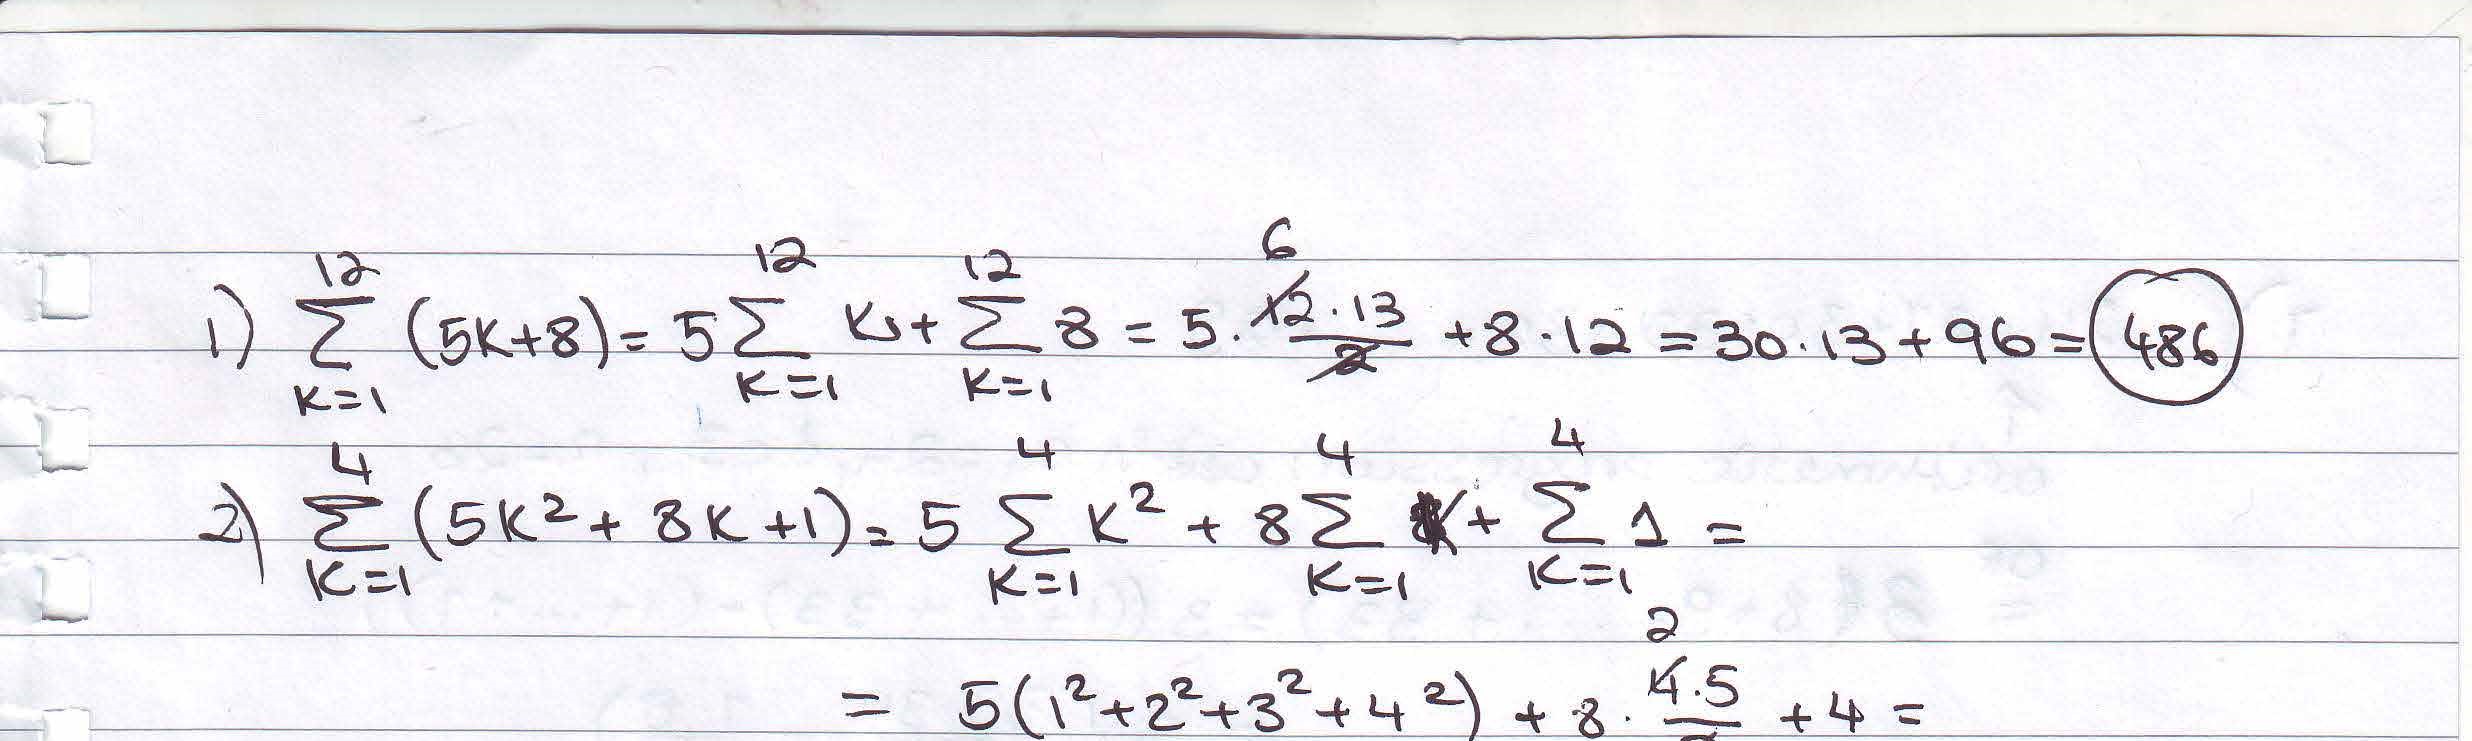 1) \sum_{K=1}^{12} (5K+8) = 5 \sum_{K=1}^{12} K + \sum_{K=1}^{12} 8 = 5 \cdot \frac{\cancel{12}^{6} \cdot 13}{\cancel{2}} + 8 \cdot 12 = 30 \cdot 13 + 96 = 486
2) \sum_{K=1}^{4} (5K^2 + 8K + 1) = 5 \sum_{K=1}^{4} K^2 + 8 \sum_{K=1}^{4} K + \sum_{K=1}^{4} 1 =
= 5(1^2 + 2^2 + 3^2 + 4^2) + 8 \cdot \frac{\cancel{4}^{2} \cdot 5}{2} + 4 =